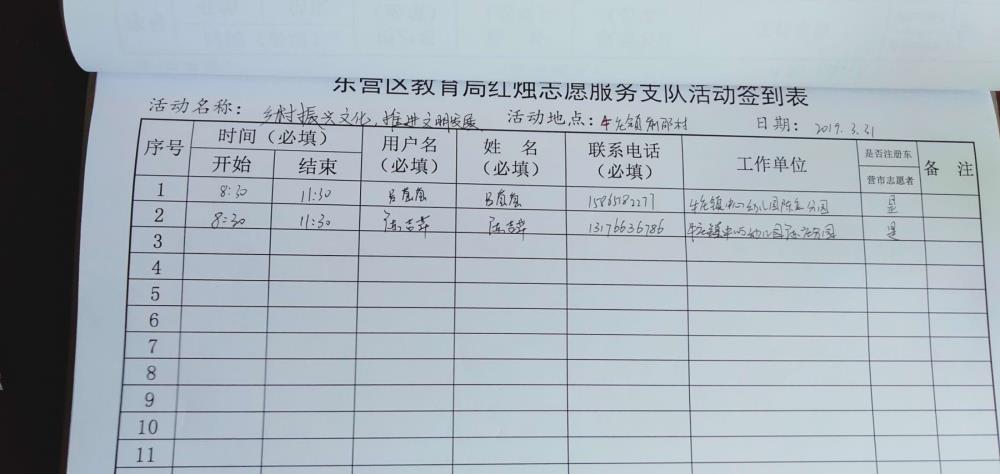 东营区教育局红烛志愿服务支队活动签到表
活动名称： 乡村振兴文化，推进文明发展 活动地点：牛庄镇 村 日期： 2019.3.31
序号 时间（必填） 用户名（必填） 姓 名（必填） 联系电话（必填） 工作单位 是否注册东营市志愿者 备 注
开始 结束
1 8:30 11:30 15865782277 牛庄镇中心幼儿园陈庄分园 是
2 8:30 11:30 陈吉苹 陈吉苹 13176636786 牛庄镇中心幼儿园陈庄分园 是
3
4
5
6
7
8
9
10
11